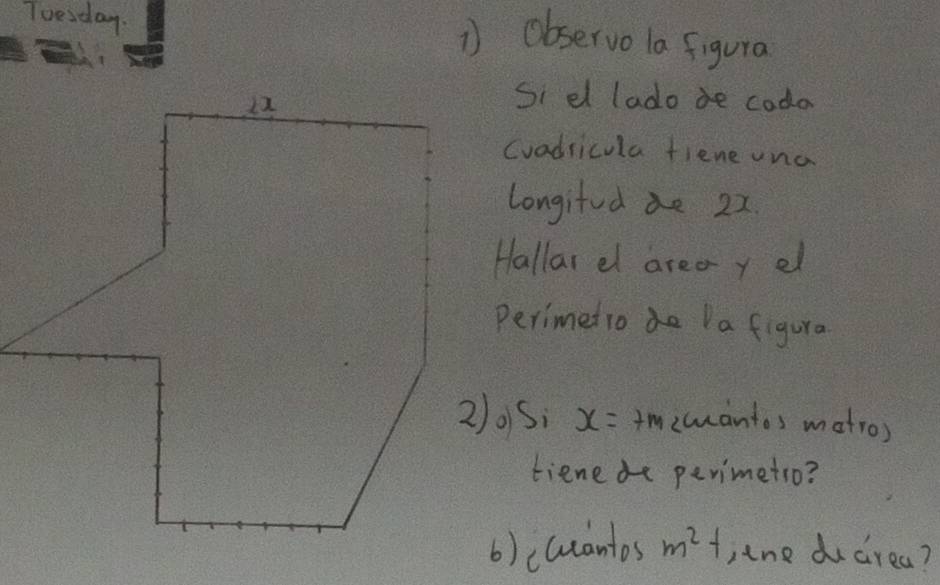 Tuesday.
2x
1) Observo la figura
Si el lado de cada
cuadricula tiene una
longitud de 2x.
Hallar el area y el
Perimetro de la figura
2) a) Si x = m ¿cuántos metros
tiene de perimetro?
b) ¿Cuántos m² tiene de área?